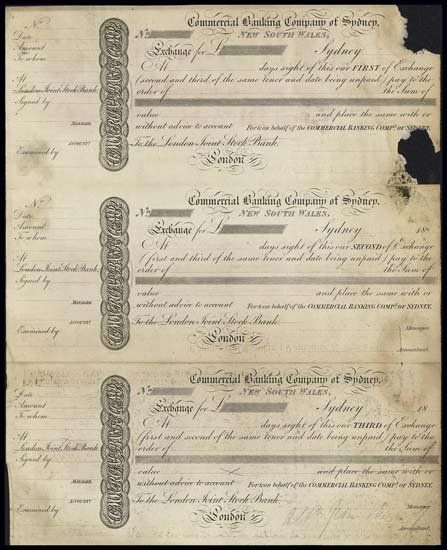 No
Date
Amount
To whom
At
London Joint Stock Bank.
Signed by
MANAGER
ACCOUNTT
Examined by
Commercial Banking Company of Sydney.
No
NEW SOUTH WALES,
Exchange for £ Sydney
At days sight of this our FIRST of Exchange
(second and third of the same tenor and date being unpaid) pay to the
order of the Sum of
value and place the same with or
without advice to account For & on behalf of the COMMERCIAL BANKING COMPY OF SYDNEY.
To the London Joint Stock Bank.
London
No
Date
Amount
To whom
At
London Joint Stock Bank.
Signed by
MANAGER
ACCOUNTT
Examined by
Commercial Banking Company of Sydney.
No
NEW SOUTH WALES,
Exchange for £ Sydney 18
At days sight of this our SECOND of Exchange
(first and third of the same tenor and date being unpaid) pay to the
order of the Sum of
value and place the same with or
without advice to account For & on behalf of the COMMERCIAL BANKING COMPY OF SYDNEY.
To the London Joint Stock Bank
Manager.
London
Accountant.
No
Date
Amount
To whom
At
London Joint Stock Bank.
Signed by
MANAGER
ACCOUNTT
Examined by
Commercial Banking Company of Sydney.
No
NEW SOUTH WALES,
Exchange for £ Sydney 18
At days sight of this our THIRD of Exchange
(first and second of the same tenor and date being unpaid) pay to the
order of the Sum of
value and place the same with or
without advice to account For & on behalf of the COMMERCIAL BANKING COMPY OF SYDNEY.
To the London Joint Stock Bank
Manager.
London
Accountant.